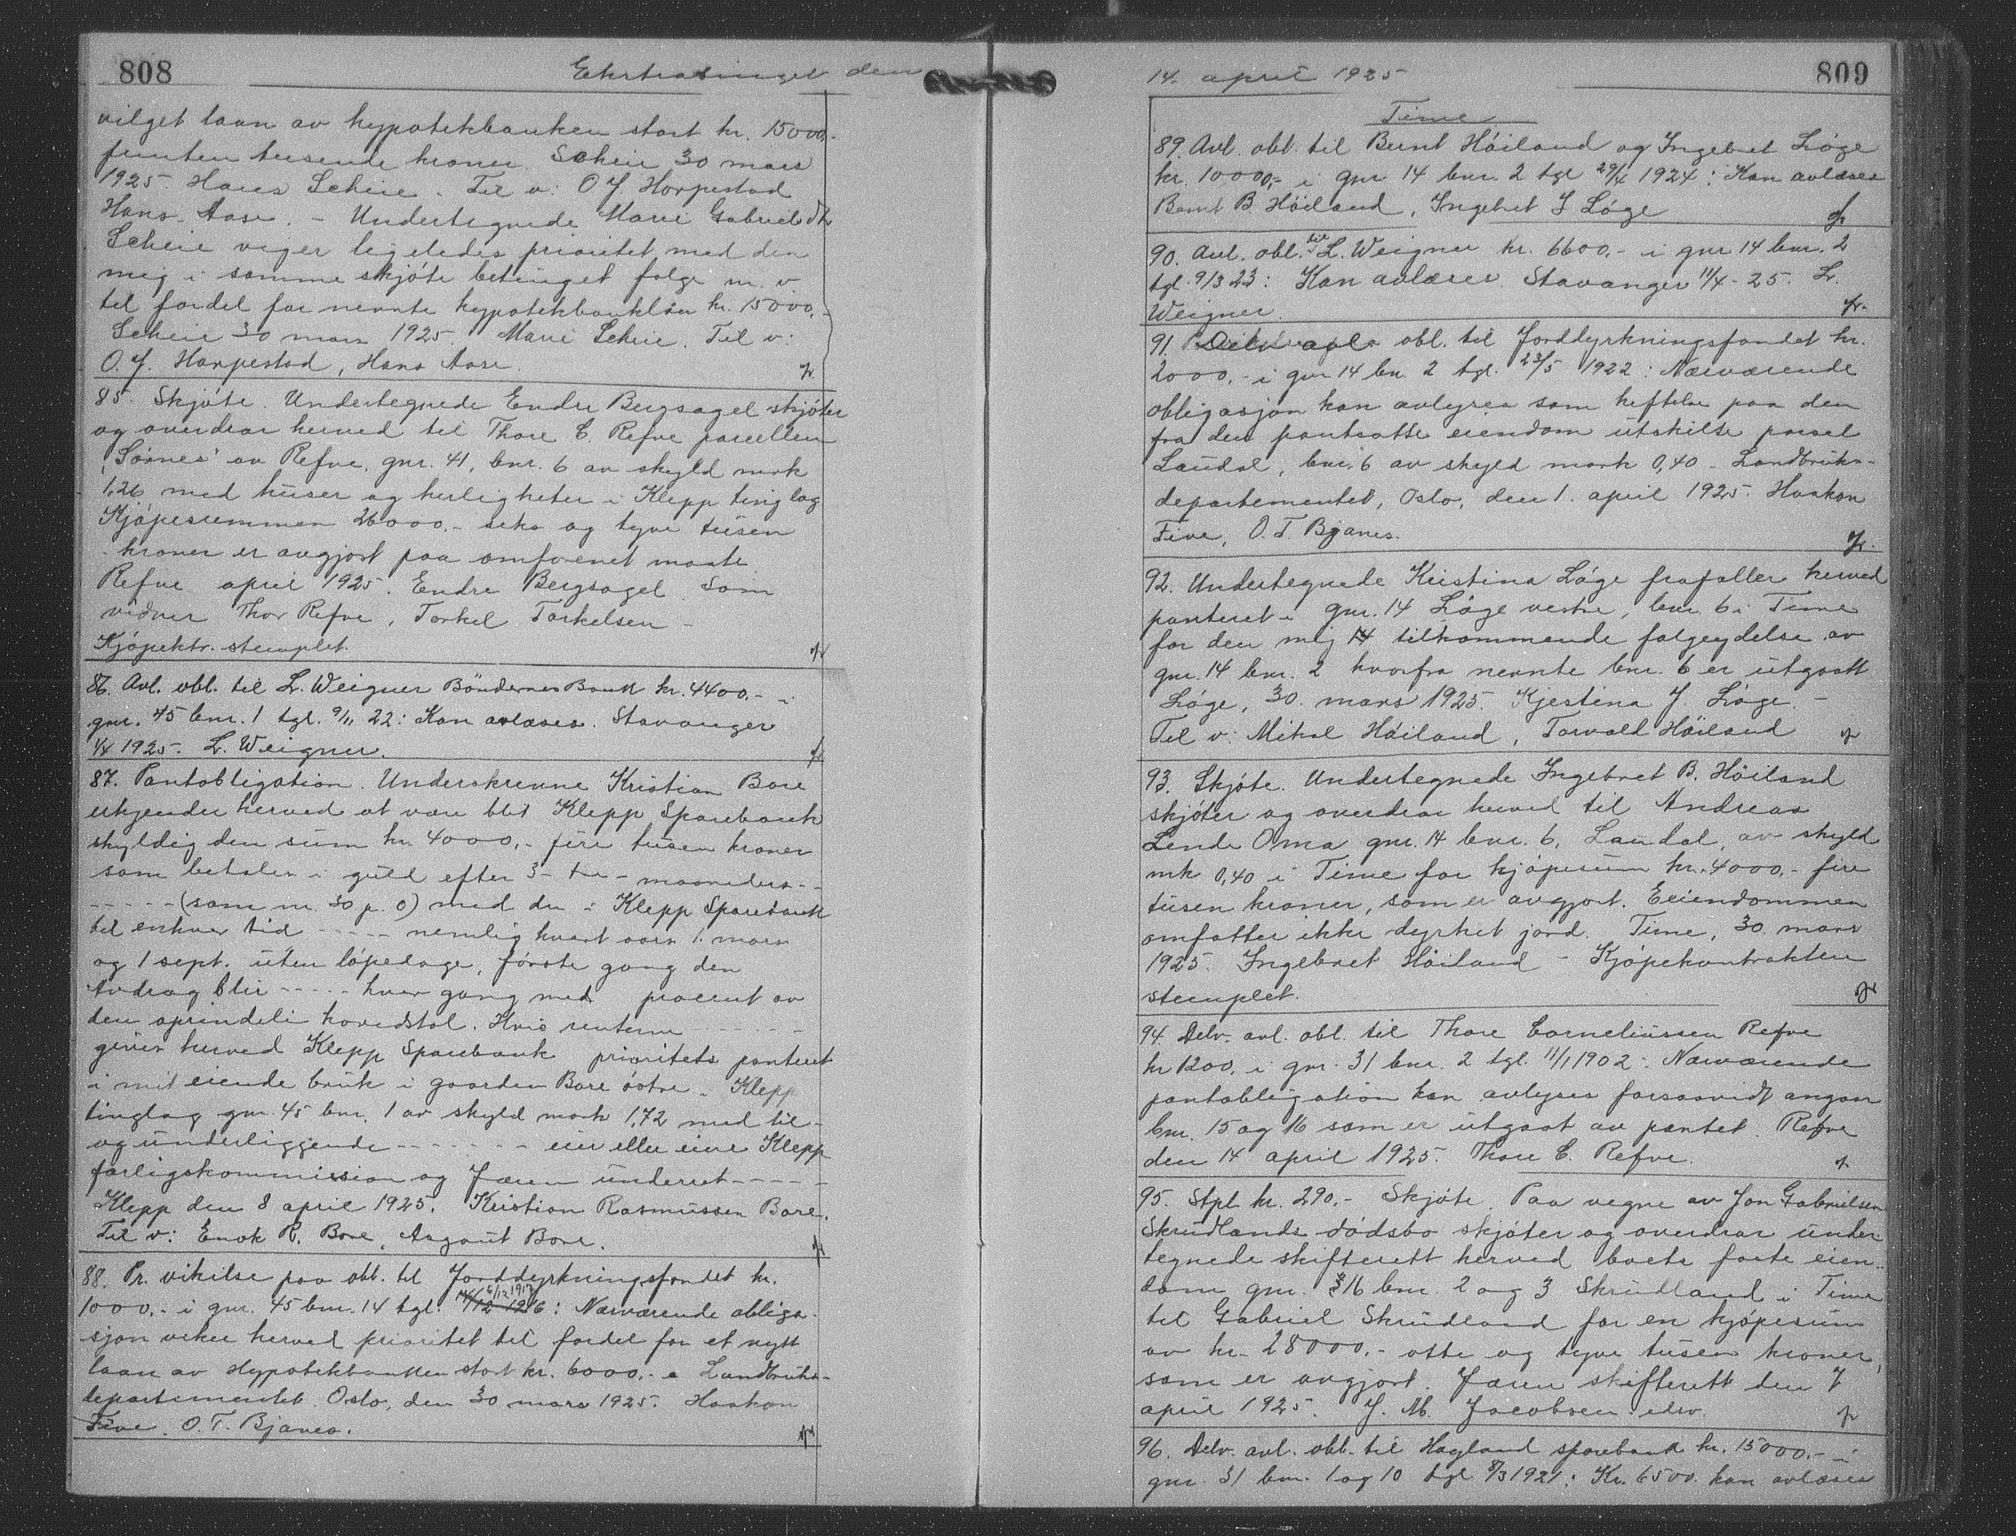 808
Ekstratinget den
vilget laan av hypotekbanken stort kr. 15000,-
femten tusende kroner. Scheie 30 mars
1925. Hans Scheie. Til v: O J Horpestad
Hans Aase. - Undertegnede Marie Gabrielsdtr
Scheie viger ligeledes prioritet med den
mig i samme skjøte betinget følge m. v.
til fordel for nevnte hypotekbanklån kr. 15000,-
Scheie 30 mars 1925. Marie Scheie. Til v:
O. J. Horpestad, Hans Aase.
85. Skjøte. Undertegnede Endre Bergsagel skjøter
og overdrar herved til Thore C. Refve parcellen
"Sørnes" av Refve, gnr. 41, bnr. 6 av skyld mork
1,26 med huser og herligheter i Klepp tinglag
Kjøpesummen 26000,- seks og tyve tusen
kroner er avgjort paa omforenet maate
Refve april 1925. Endre Bergsagel. Som
vidner Thor Refve, Torkel Torkelsen -
Kjøpektr. stemplet.
86. Avl. obl. til L. Weigner Bøndernes Bank kr. 4400,- i
gnr. 45 bnr. 1 tgl. 9/11 22: Kan avlæses. Stavanger
1/4 1925. L. Weigner.
87. Pantobligation. Underskrevne Kristian Bore
erkjender herved at være blit Klepp Sparebank
skyldig den sum kr. 4000,- fire tusen kroner
som betales i guld efter 3- tre - maaneders - -
- - - - - (som nr. 30 p. 0) med den i Klepp Sparebank
til enhver tid - - - - - nemlig hvert aars 1. mars
og 1 sept. uten løpedage, første gang den
Avdrag blir - - - - - hver gang med procent av
den oprindeli hovedstol. Hvis renterne - - - - - -
giver herved Klepp Sparebank prioritets panteret
i mit eiende bruk i gaarden Bore østre i Klepp
tinglag gnr. 45 bnr. 1 av skyld mork 1,72 med til-
og underliggende - - - - - - - eier eller eiere Klepp
forligskommission og Jæren underret - - - - -
Klepp den 8 april 1925. Kristian Rasmussen Bore.
Til v: Enok R. Bore, Asgaut Bore.
88. Pr. vikilse paa obl. til Jorddyrkningsfondet kr.
1000,- i gnr. 45 bnr. 14 tgl. 6/12 1917: Nærværende obliga-
sjon viker herved prioritet til fordel for et nytt
laan av Hypotekbanken stort kr. 6000,- Landbruks-
departementet. Oslo, den 30 mars 1925. Haakon
Five. O. T. Bjanes.
14. april 1925
809
Time
89. Avl. obl. til Bernt Høiland og Ingebret Løge
kr. 10000,- i gnr 14 bnr. 2 tgl 29/4 1924: Kan avlæses
Bernt B. Høiland, Ingebret J Løge
90. Avl. obl. til L. Weigner kr. 6600,- i gnr 14 bnr. 2
tgl. 9/3 23: Kan avlæses. Stavanger 11/4 - 25. L.
Weigner.
91. Delv avl. obl. til Jorddyrkningsfondet kr.
2000,- i gnr 14 bnr 2 tgl. 23/5 1922: Nærværende
obligasjon kan avlyses som heftelse paa den
fra den pantsatte eiendom utskilte parsel
Laudal, bnr. 6 av skyld mork 0,40 - Landbruks-
departementet, Oslo, den 1. april 1925. Haakon
Five, O. T. Bjanes.
92. Undertegnede Kristina Løge frafaller herved
panteret i gnr. 14 Løge vestre, bnr. 6 i Time
for den mig tilkommende følgeydelse av
gnr. 14 bnr. 2 hvorfra nevnte bnr. 6 er utgaatt
Løge, 30. mars 1925. Kjestina J. Løge. -
Til v: Mikal Høiland, Torvald Høiland
93. Skjøte. Undertegnede Ingebret B. Høiland
skjøter og overdrar herved til Andreas
Lende Oma gnr. 14 bnr. 6, Laudal, av skyld
mk 0,40 i Time for kjøpesum kr. 4000,- fire
tusen kroner, som er avgjort. Eiendommen
omfatter ikke dyrket jord. Time, 30. mars
1925. Ingebret Høiland - Kjøpekontrakten
stemplet.
94. Delv. avl. obl. til Thore Corneliussen Refve
kr 1200, i gnr. 31 bnr. 2 tgl. 11/1 1902: Nærværende
pantobligation kan avlyses forsaavidt angaar
bnr. 15 og 16 som er utgaat av pantet. Refve
den 14 april 1925. Thore C. Refve.
95. Stpl kr. 290,- Skjøte. Paa vegne av Jon Gabrielsen
Skrudlands dødsbo skjøter og overdrar under-
tegnede skifterett herved boets faste eien-
dom gnr. 16 bnr. 2 og 3 Skrudland i Time
til Gabriel Skrudland for en kjøpesum
av kr. 28000,- otte og tyve tusen kroner,
som er avgjort. Jæren skifterett den 7
april 1925. J. M. Jacobsen edsv.
96. Delv. avl. obl. til Høgland sparebank kr. 15000,- i
gnr. 31 bnr. 1 og 10 tgl. 8/3 1921: Kr. 6500. kan avlæses